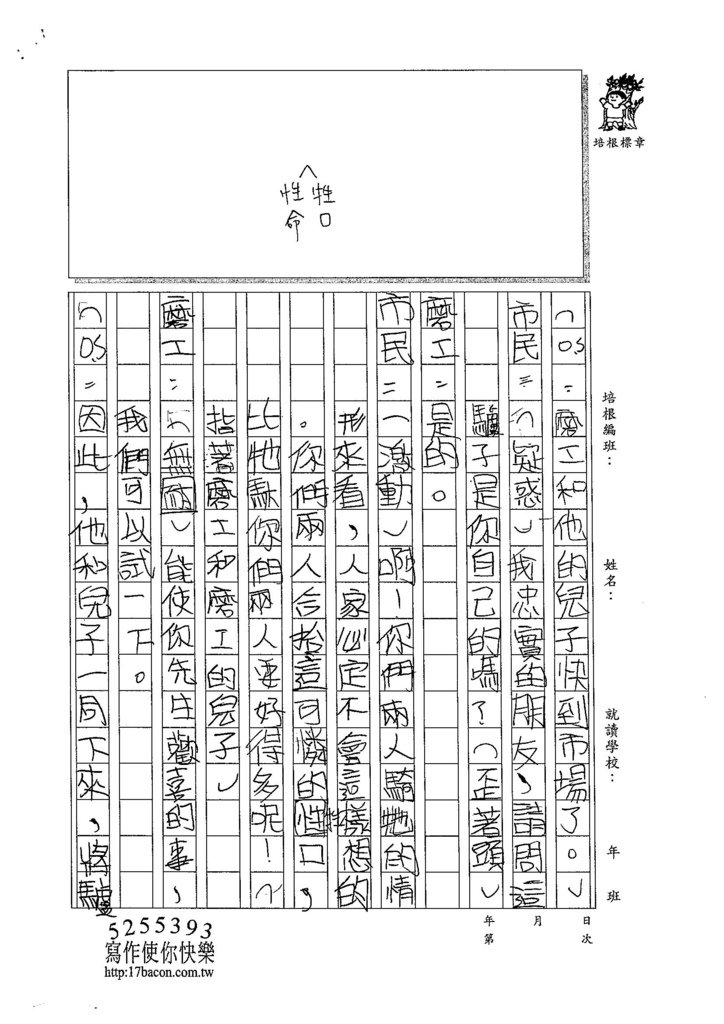 培根標章
牲口
性命
培根編班：
姓名：
就讀學校：
年 班
年 月 日
第 次
（O.S：磨工和他的兒子快到市場了。）
市民：（疑惑）我忠實的朋友，請問這
驢子是你自己的嗎？（歪著頭）
磨工：是的。
市民：（激動）啊！你們兩人騎牠的情
形來看，人家必定不會這樣想的
。你們兩人合抬這可憐的性口，
牲
比牠馱你們兩人要好得多呢！（
指著磨工和磨工的兒子）
磨工：（無耐）能使你先生歡喜的事，
我們可以試一下。
（O.S：因此，他和兒子一同下來，將驢
5255393
寫作使你快樂
http:17bacon.com.tw